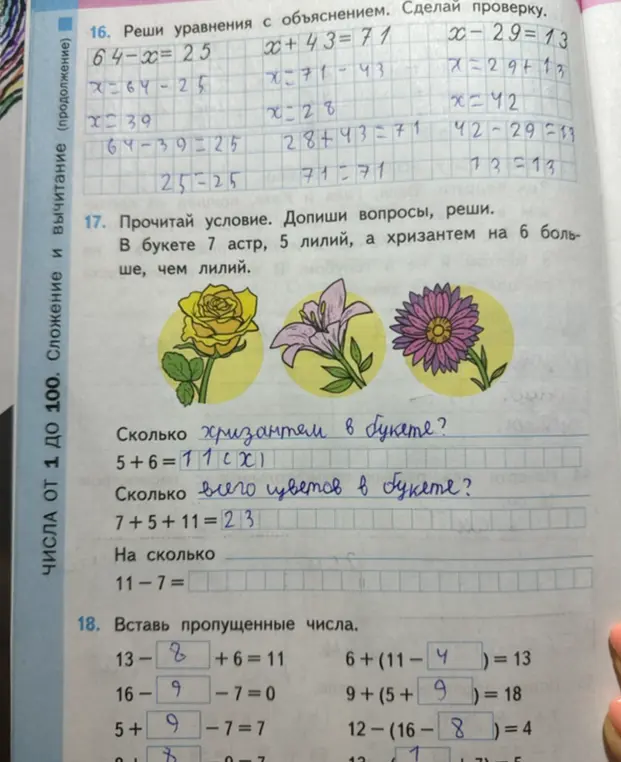 16. Реши уравнения с объяснением. Сделай проверку.
64-x=25 x+43=71 x-29=13
x=64-25 x=71-43 x=29+13
x=39 x=28 x=42
64-39=25 28+43=71 42-29=13
25=25 71=71 13=13
17. Прочитай условие. Допиши вопросы, реши.
В букете 7 астр, 5 лилий, а хризантем на 6 боль-
ше, чем лилий.
Сколько хризантем в букете?
5+6=11(х)
Сколько всего цветов в букете?
7+5+11=23
На сколько
11-7=
18. Вставь пропущенные числа.
13-8+6=11 6+(11-4)=13
16-9-7=0 9+(5+9)=18
5+9-7=7 12-(16-8)=4
ЧИСЛА ОТ 1 ДО 100. Сложение и вычитание (продолжение)